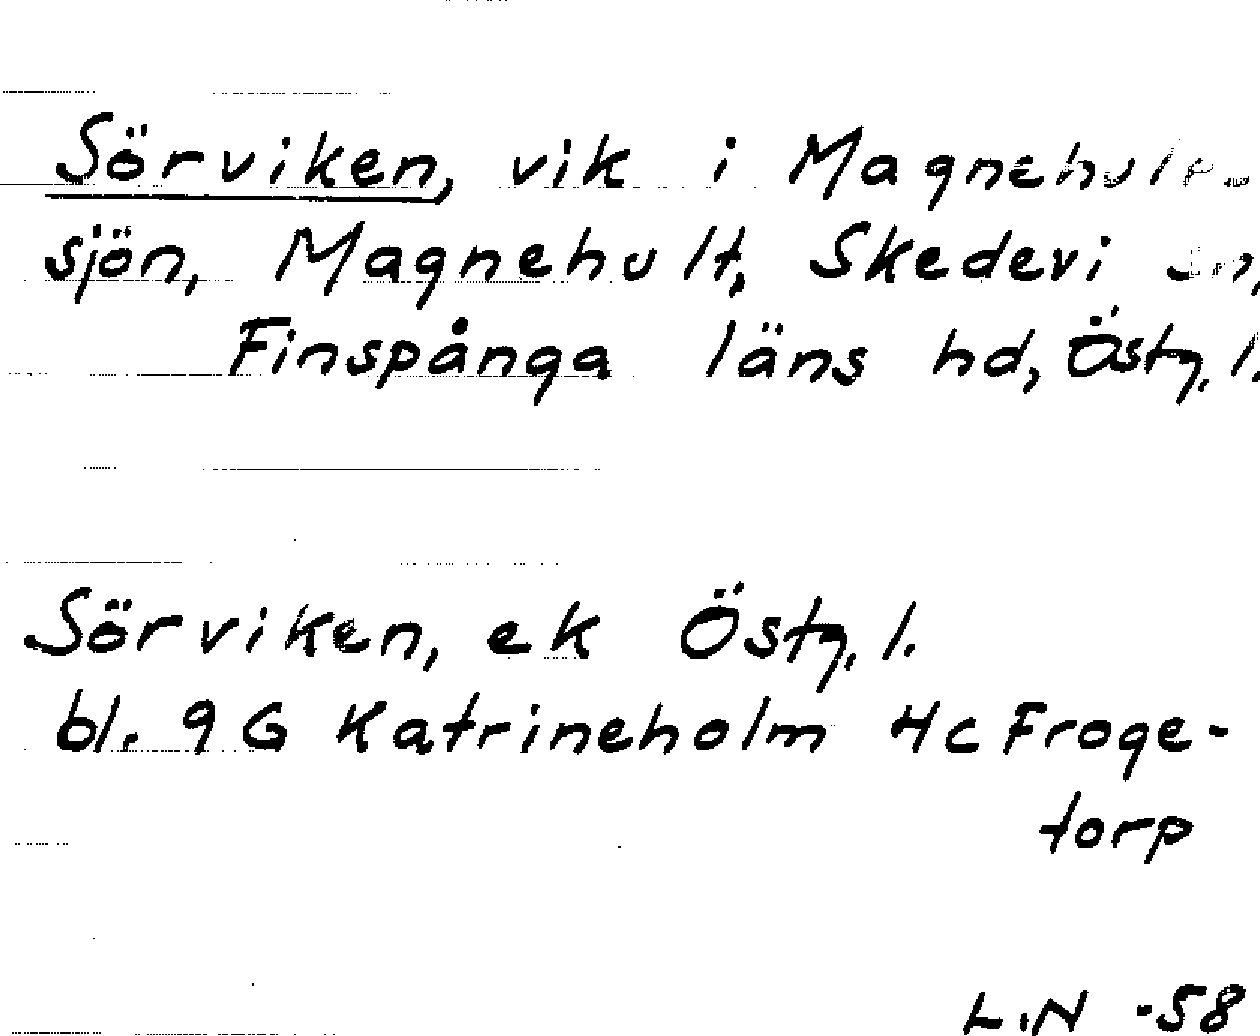 Sörviken, vik i Magnehults-
sjön, Magnehult, Skedevi sn,
Finspånga läns hd, Östg. l.
Sörviken, ek Östg. l.
bl. 9G Katrineholm 4c Froge-
torp
L.N -58